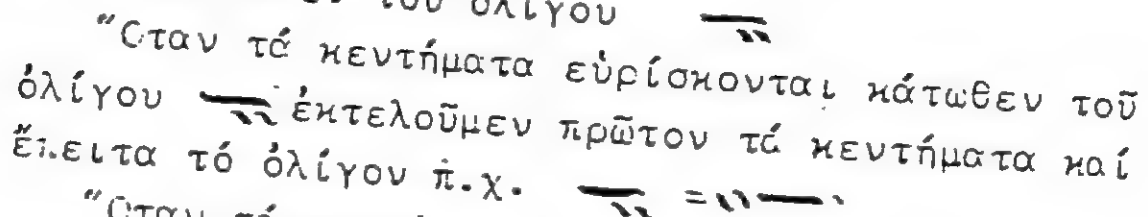 τοῦ ὀλίγου
Ὅταν τά κεντήματα εὑρίσκονται κάτωθεν τοῦ
ὀλίγου ἐκτελοῦμεν πρῶτον τά κεντήματα καί
ἔπειτα τό ὀλίγον π.χ. =
Ὅταν